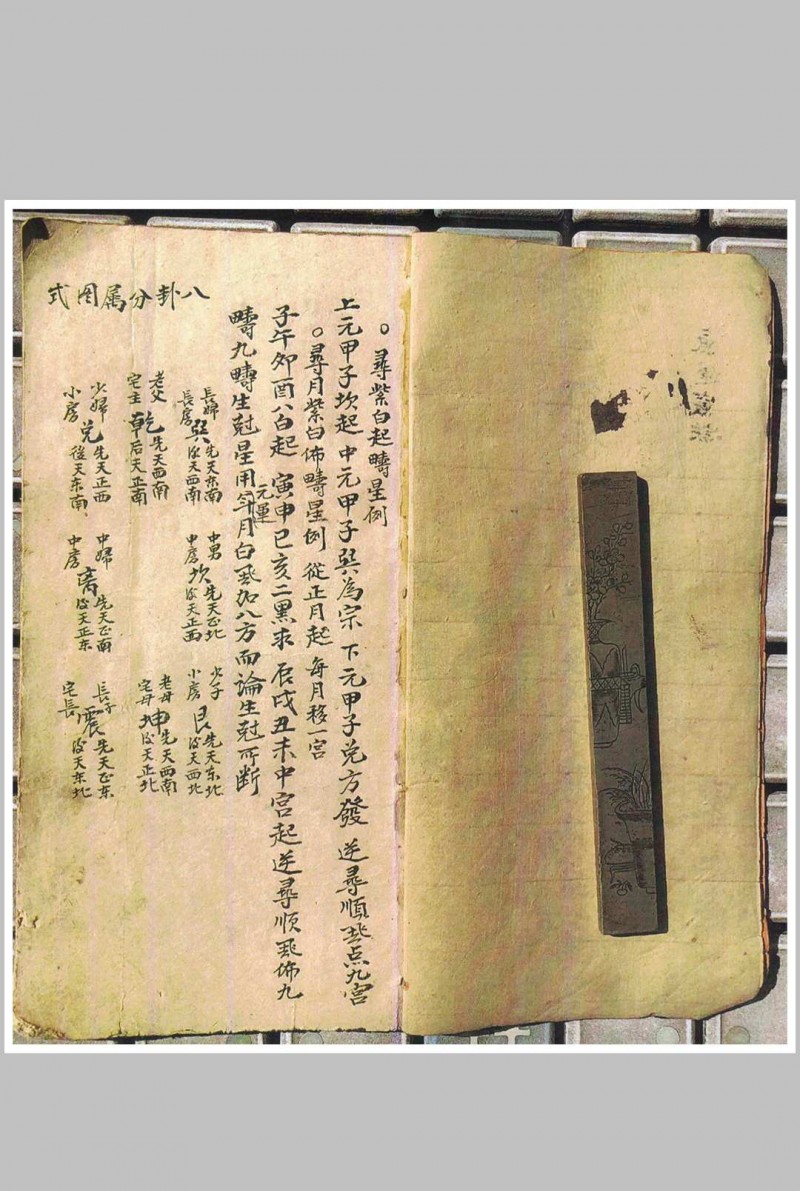 ○尋紫白起疇星例
上元甲子坎起 中元甲子巽為宗 下元甲子兑方發 逆尋順飛点九宮
○尋月紫白佈疇星例 從正月起每月移一宮
子午卯酉八白起 寅申巳亥二黑求 辰戌丑未中宮起逆尋顺飛佈九
疇九疇生尅星用年月白飛加八方而論生尅所断
元運
八卦分属图式
長婦
長房
巽
先天东南
後天西南
中男
中房
坎
先天正北
後天正西
少子
小房
艮
先天东北
後天西北
老父
宅主
乾
先天西南
后天正南
老母
宅母
坤
先天西南
後天正北
少婦
小房
兑
先天正西
後天东南
中婦
中房
离
先天正南
後天正东
長子
宅長
震
先天正东
後天东北